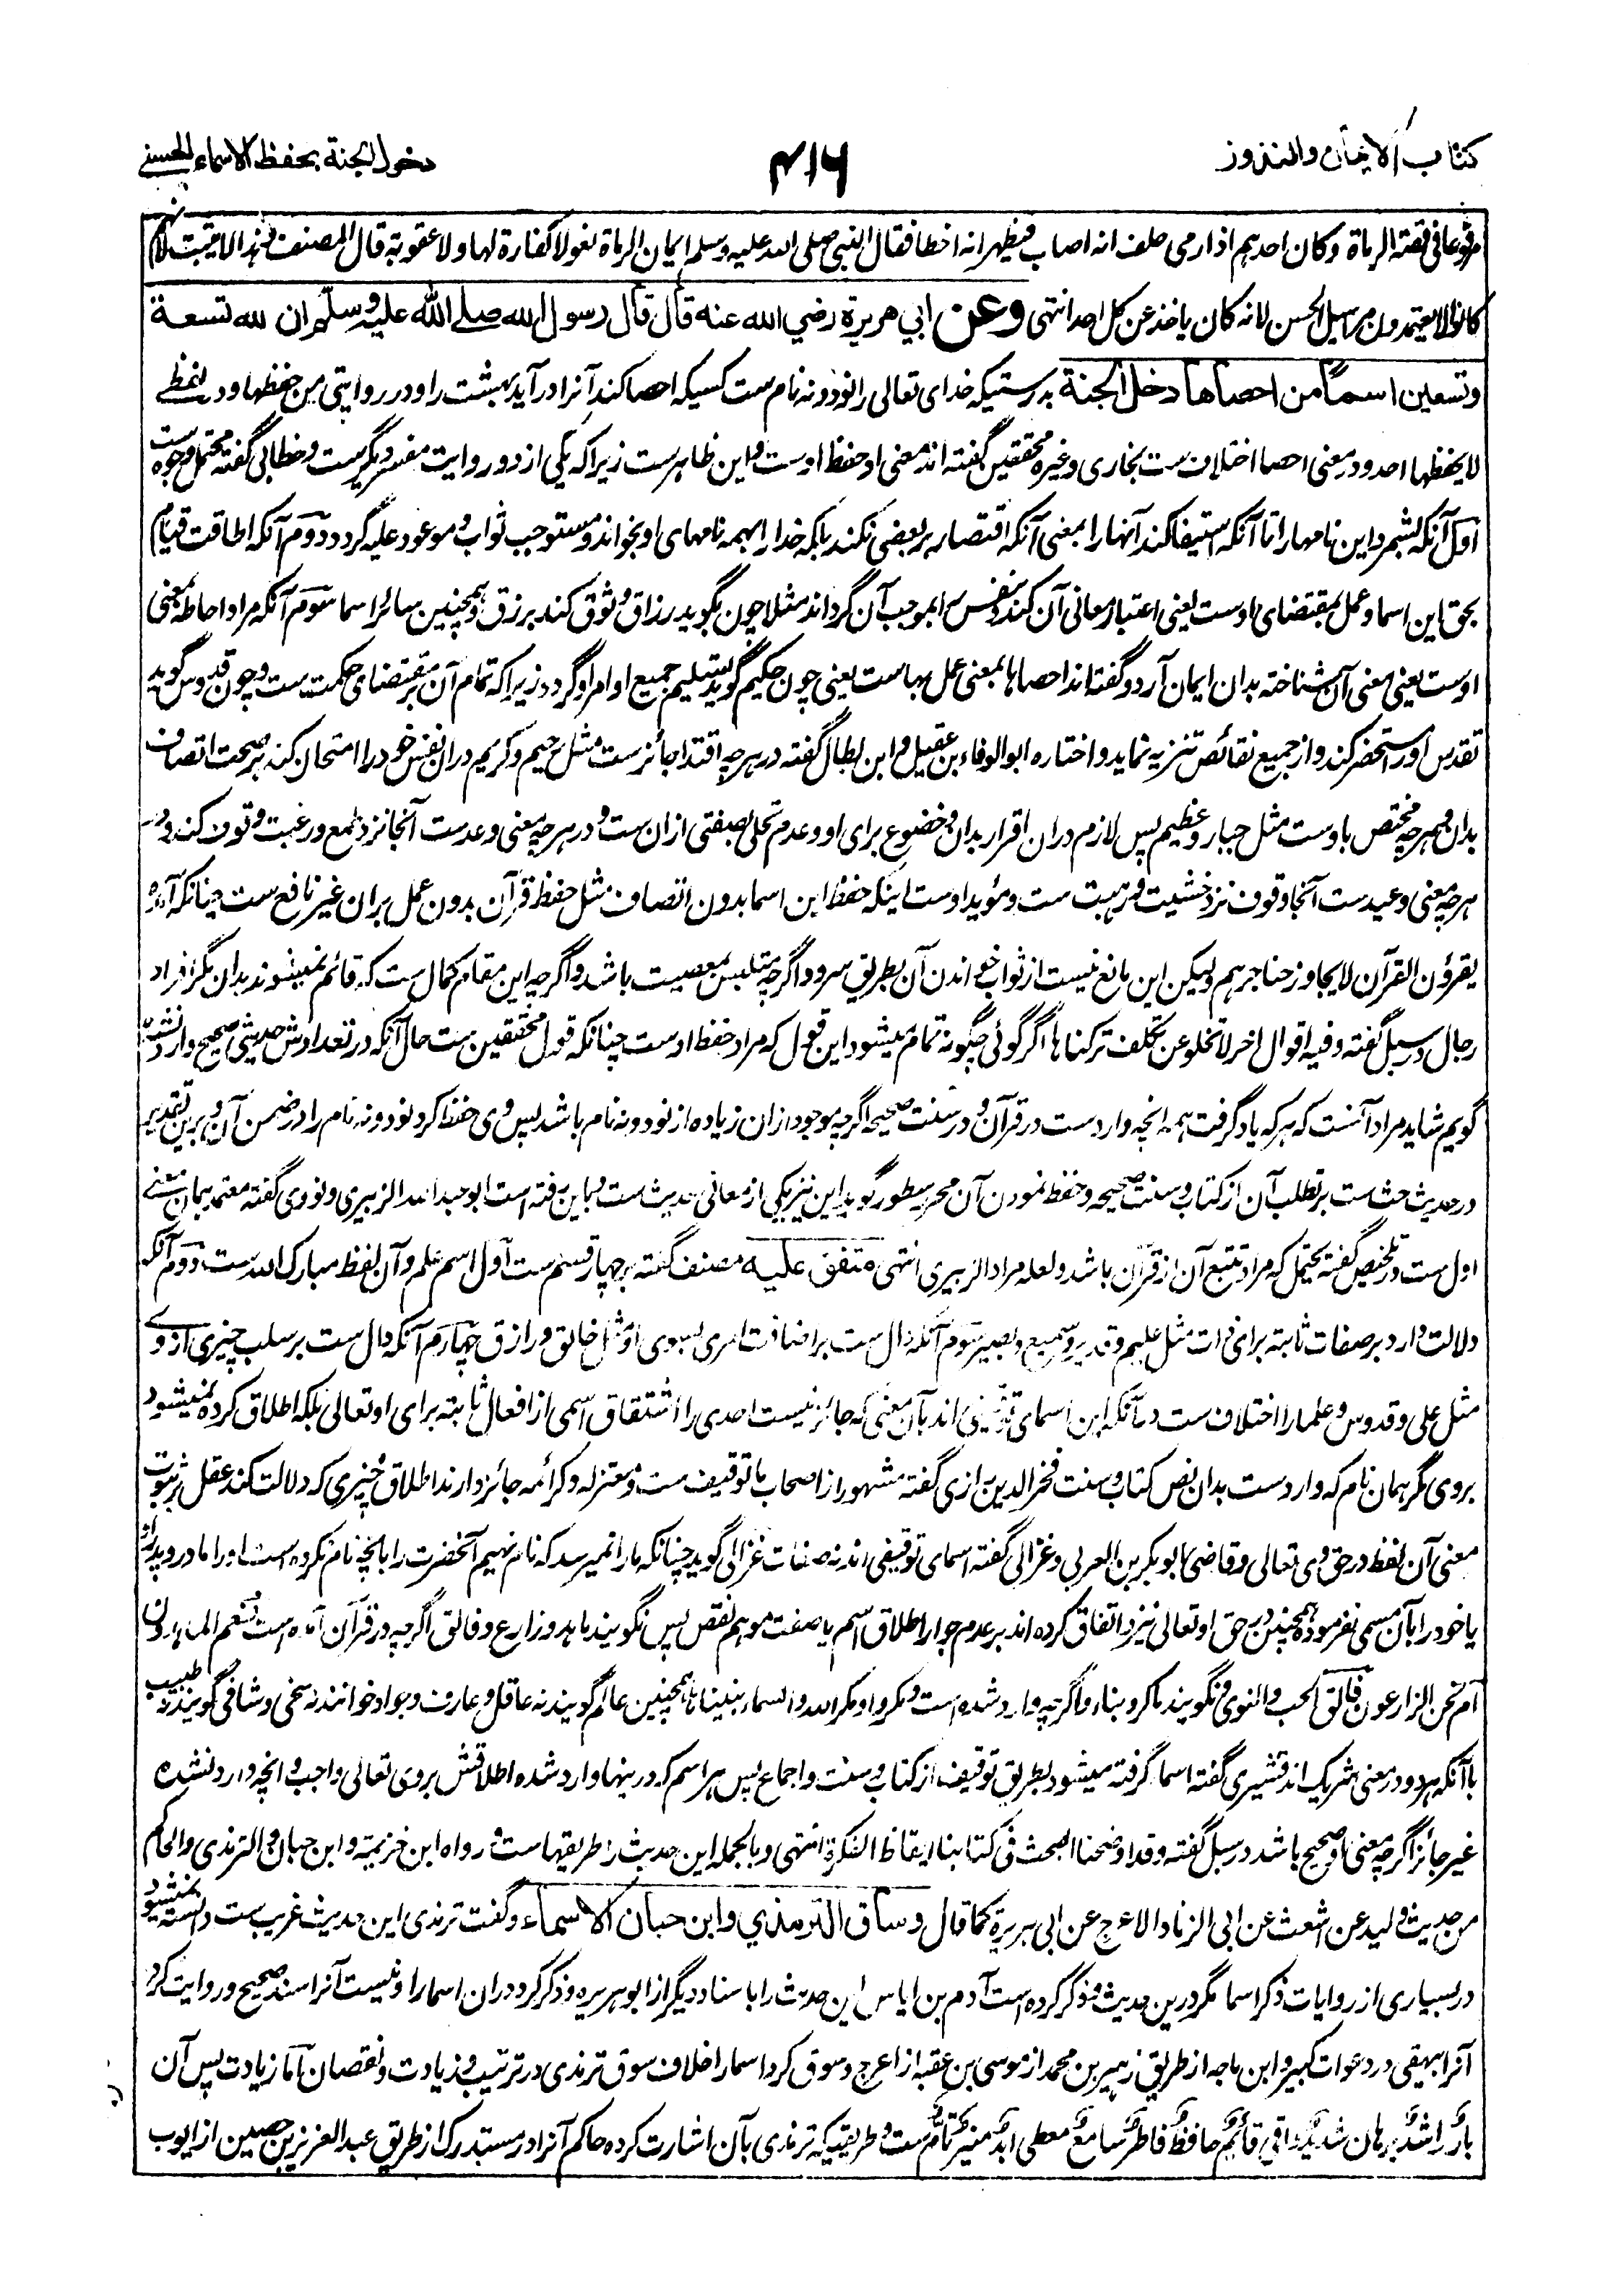 کتاب الایمان والنذور
۴۱۶
دخول الجنة بحفظ الاسماء الحسنے
مرفوعا فی قصته الرماة وکان احدہم اذا رمی حلف انه اصاب فیظهر انه اخطا فقال النبی صلی الله علیه وسلم ایمان الرماة لغو لا کفارة لها ولا عقوبة قال المصنف هذا لا یثبت لانهم
کانوا لا یعتمدون مراسیل الحسن لانه کان یاخذ عن کل احد انتهی وعن ابي هريرة رضي الله عنه قال قال رسول الله صلے الله عليه وسلم ان لله تسعة
وتسعين اسما من احصاها دخل الجنة بدرستیکه خدای تعالی را نود ونه نام ست کسیکه احصا کند آنرا درآید بهشت را ودر روایتی من حفظها ودر لفظے
لا یحفظها احد ودر معنی احصا اختلاف ست بخاری وغیره محققین گفته اند معنی او حفظ اوست واین ظاهرست زیرا که یکی از دو روایت مفسر دیگرست وخطابی گفته محتمل وجوه ست
اول آنکه بشمرد این نامها را تا آنکه استیفا کند آنها را بمعنی آنکه اقتصار بر بعضی نکند بلکه خدا را بهمه نامهای او بخواند ومستوجب ثواب موعود علیه گردد دوم آنکه اطاقت قیام
بحق این اسما وعمل بمقتضای اوست یعنی اعتبار معانی آن کند ونفس را بموجب آن گرداند مثلا چون بگوید رزاق وثوق کند برزق وهمچنین سائر اسما سوم آنکه مراد احاطه بمعنی
اوست یعنی معنی آن شناخته بدان ایمان آرد وگفته اند احصاها بمعنی عمل بهاست یعنی چون حکیم گوید تسلیم جمیع اوامر او گردد زیرا که تمام آن بر مقتضای حکمت ست وچون قدوس گوید
تقدس او را مستحضر کند واز جمیع نقائص تنزیه نماید واختاره ابو الوفاء بن عقیل وابن بطال گفته در هرچه اقتدا جائزست مثل رحیم وکریم دران نفس خود را امتحان کند بر صحت اتصاف
بدان وهرچه مختص باوست مثل جبار وعظیم پس لازم دران اقرار بدان وخضوع برای او وعدم تحلی بصفتی ازان ست ودر هرچه معنی وعدست آنجا نزد طمع ورغبت وقوف کند ودر
هرچه معنی وعیدست آنجا وقوف نزد خشیت ورهبت ست ومؤید اوست اینکه حفظ این اسما بدون اتصاف مثل حفظ قرآن بدون عمل بران غیر نافع ست چنانکه آمده
یقرؤن القرآن لا یجاوز حناجرهم ولیکن این مانع نیست از ثواب خواندن آن بطریق سرد واگرچه متلبس بمعصیت باشد واگرچه این مقام کمال ست که قائم نمیشوند بدان مگر افراد
رجال در سبل گفته وفیه اقوال اخر لا تخلو عن تکلف ترکناها اگر گوئی چگونه تمام میشود این قول که مراد حفظ اوست چنانکه قول محققین ست حال آنکه در تعدادش حدیثی صحیح وارد نشده
گویم شاید مراد آنست که هرکه یاد گرفت همه انچه واردست در قرآن ودر سنت صحیحه اگرچه موجود ازان زیاده از نود ونه نام باشد پس وی حفظ کرد نود ونه نام را در ضمن آن وبرین تقدیر
در حدیث حث ست بر تطلب آن از کتاب وسنت صحیحه وحفظ نمودن آن محرر سطور گوید این نیز یکی از معانی حدیث ست وباین رفته است ابو عبد الله الزبیری ونووی گفته معتمد همان معنے
اول ست در تلخیص گفته یحتمل که مراد تتبع آن از قرآن باشد ولعله مراد الزبیری انتهی متفق علیه مصنف گفته بر چهار قسم ست اول اسم علم وآن لفظ مبارک الله ست دوم آنکه
دلالت دارد بر صفات ثابته برای ذات مثل علیم وقدیر وسمیع وبصیر سوم آنکه دال ست بر اضافت امری بسوی او مثل خالق ورازق چهارم آنکه دال ست بر سلب چیزی از وے
مثل علی وقدوس وعلما را اختلاف ست در آنکه این اسمای توقیفی اند بآن معنی که جائز نیست احدی را اشتقاق اسمی از افعال ثابته برای او تعالی بلکه اطلاق کرده نمیشود
بروی مگر همان نام که واردست بدان نص کتاب وسنت فخر الدین رازی گفته مشهور از اصحاب ما توقیف ست ومعتزله وکرامیه جائز دارند اطلاق چیزی که دلالت کند عقل بر ثبوت
معنی آن لفظ در حق وی تعالی وقاضی ابو بکر بن العربی وغزالی گفته اسمای توقیفی اند نه صفات غزالی گوید چنانکه ما را نمیرسد که نام نهیم آنحضرت را بانچه نام نکرده است او را مادر وپدر او
یا خود را بآن مسمی نفرموده همچنین در حق او تعالی نیز واتفاق کرده اند بر عدم جواز اطلاق اسم یا صفت موهم نقص پس نگویند ماهد وزارع وفالق اگرچه در قرآن آمده است فنعم الماهدون
ام نحن الزارعون فالق الحب والنوی ونگویند ماکر وبناء واگرچه وارد شده است ومکروا ومکر الله والسماء بنیناها همچنین عالم گویند نه عاقل وعارف وجواد خوانند نه سخی وشافی گویند نه طبیب
با آنکه هر دو در معنی شریک اند قشیری گفته اسما گرفته میشود بطریق توقیف از کتاب وسنت واجماع پس هر اسم که درینها وارد شده اطلاقش بروی تعالی واجب وانچه وارد نشده
غیر جائز اگرچه معنی او صحیح باشد در سبل گفته وقد اوضحنا البحث فی کتابنا ایقاظ الفکرة انتهی وبالجمله این حدیث را طریقهاست رواه ابن خزیمة وابن حبان والترمذی والحاکم
من حدیث ولید عن اشعث عن ابی الزناد الاعرج عن ابی هریرة کما قال وساق الترمذي وابن حبان الاسماء وگفت ترمذی این حدیث غریب ست دانسته نمیشود
در بسیاری از روایات ذکر اسما مگر درین حدیث وذکر کرده است آدم بن ایاس این حدیث را باسناد دیگر از ابو هریره وذکر کرد دران اسما را ونیست آنرا سند صحیح وروایت کرد
آنرا بیهقی در دعوات کبیر وابن ماجه از طریق زهیر بن محمد از موسی بن عقبه از اعرج وسوق کرد اسما را خلاف سوق ترمذی در ترتیب وزیادت ونقصان اما زیادت پس آن
بار راشد برهان شدید واقی قائم حافظ فاطر سامع معطی ابد منیر تام ست وطریقیکه ترمذی بآن اشارت کرده حاکم آنرا در مستدرک از طریق عبد العزیز بن حصین از ایوب